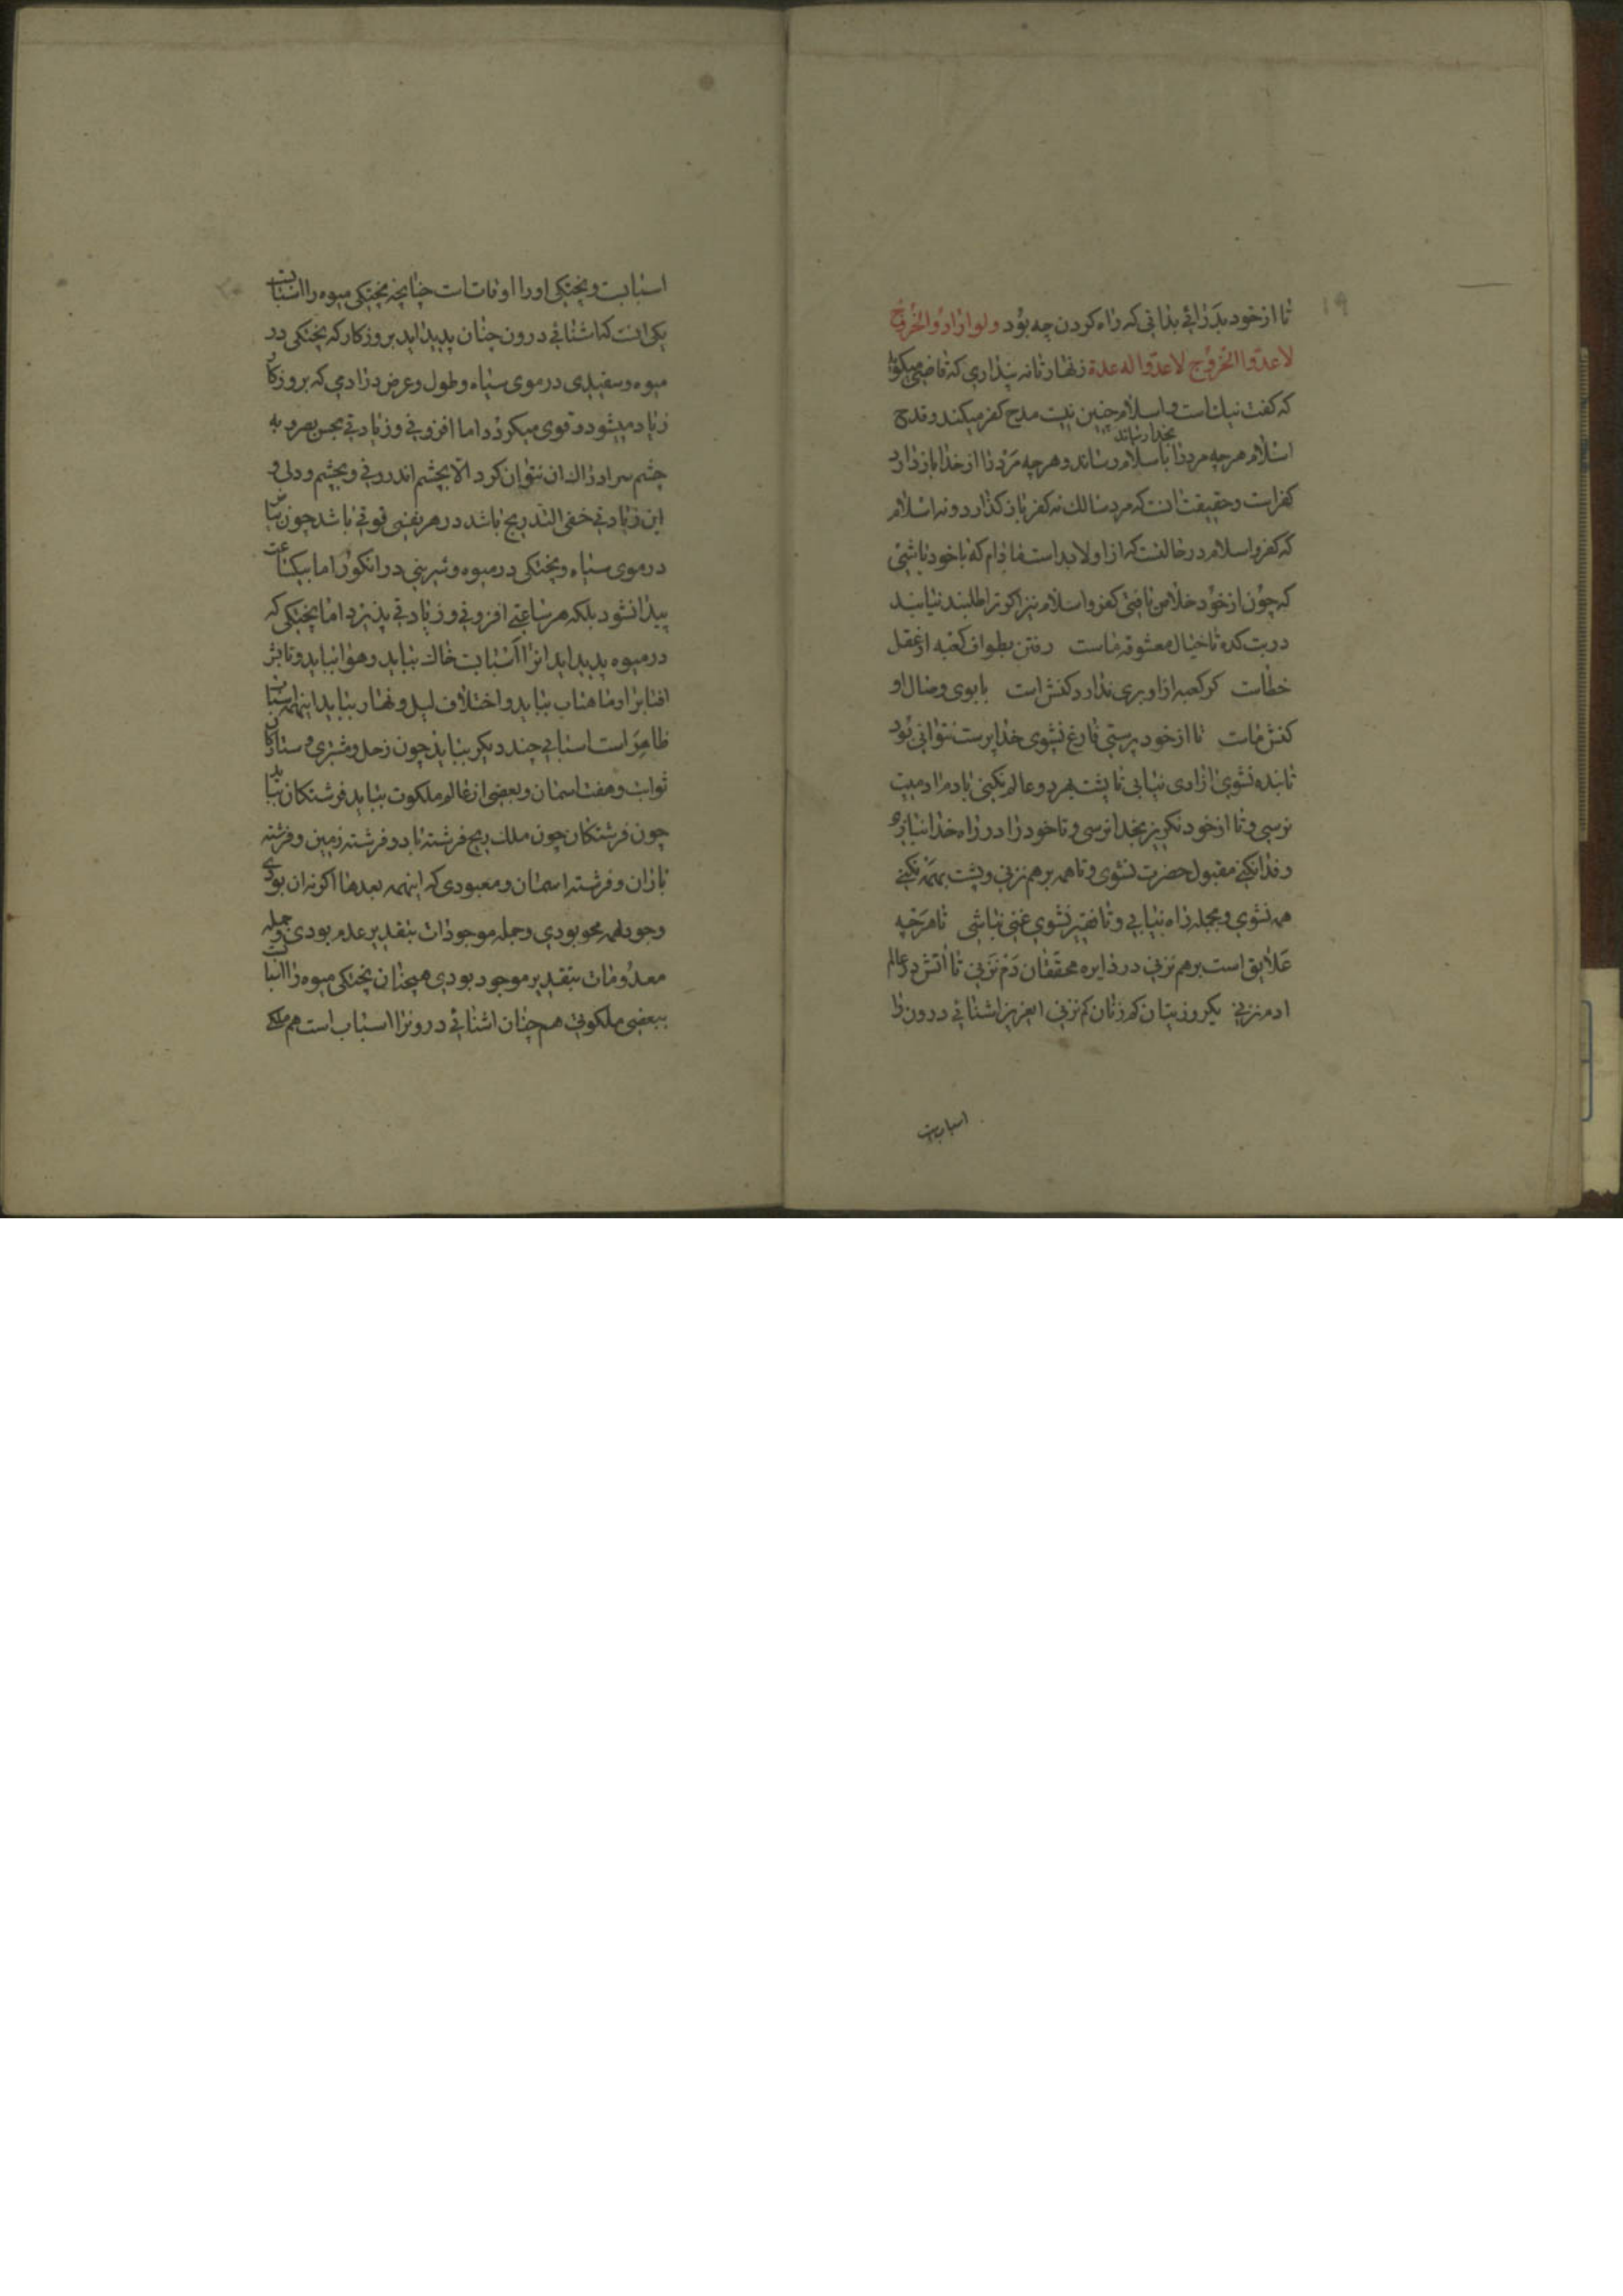 ۱۹
تا از خود بدر آئی بدانی که راه کردن چه بود ولو ارادو الخروج
لاعدّوا الخروج لاعدّوا له عدة زنهار تا نه پنداری که قاضی میکوید
که کفت نیک است و اسلام چنین نیست مدح کفر میکند و قدح
بخدا رساند
اسلام هرچه مرد را باسلام رساند و هرچه مرد را از خدا باز دارد
کفرست و حقیقت انست که مرد سالک نه کفر باز کذارد و نه اسلام
که کفر و اسلام دو حالتست که از او لا بد است مادام که با خود باشی
که چون از خود خلاص یافتی کفر و اسلام نیز اکر ترا طلبند نیابند
در بت کده تا خیال معشوقه ماست رفتن بطواف کعبه از عقل
خطاست کر کعبه ازو بوی ندارد کنش است با بوی وصال او
کنش ماست تا از خود پرستی فارغ نشوی خدا پرست نتوانی بود
تا بنده نشوی ازادی نیابی تا پشت بهر دو عالم نکنی بادم ادمیت
نرسی و تا از خود نکریزی بخدا نرسی و تا خود را در راه خدا نبازی
و فدا نکنی مقبول حضرت نشوی و تا همه بر هم نزنی و پشت بهمه نکنی
همه نشوی و بجمله راه نیابی و تا فقیر نشوی غنی نباشی تا هرچه
علایق است بر هم نزنی در دایره محققان دم نزنی تا اتش در عالم
ادم نزنی یکروز میان کم زنان کم نزنی ای عزیز اشنائی درون را
اسبابست
اسبابست و پختکی او را اوقاتست چنانچه پختکی میوه را اسبابست
یکی انست که اشنائی درون چنان پدید اید بروزکار که پختکی در
میوه و سفیدی در موی سیاه و طول و عرض در ادمی که بروزکار
زیاد میشود و قوی میکردد اما افزونی و زیادتی بحس بصر و به
چشم سر ادراک ان نتوان کرد الّا بچشم اندرونی و بچشم و دلی و
این زیادتی خفی التدریج باشد در هر نفسی قوتی باشد چون بیاض
در موی سیاه و پختکی در میوه و شیرینی در انکور اما بیکساعت
پیدا نشود بلکه هر ساعتی افزونی و زیادتی پذیرد اما پختکی که
در میوه پدید اید انرا اسبابست خاک بباید و هوا بباید و تابش
افتاب و ماهتاب بباید و اختلاف لیل و نهار بباید اینهمه اسباب
ظاهر است اسبابی چند دیکر بباید چون زحل و مشتری و ستارکان
ثوابت و هفت اسمان و بعضی از عالم ملکوت بباید فرشتکان بباید
چون فرشتکان چون ملک ریح فرشته باد و فرشته زمین و فرشته
باران و فرشته اسمان و معبودی که اینهمه بعدها اکر نه ان بودی
وجود همه محو بودی و جمله موجودات بتقدیر عدم بودی و جمله
معدومات بتقدیر موجود بودی همچنان پختکی میوه را اسبابست
ببعضی ملکوتی همچنان اشنائی درونرا اسباب است هم ملکی